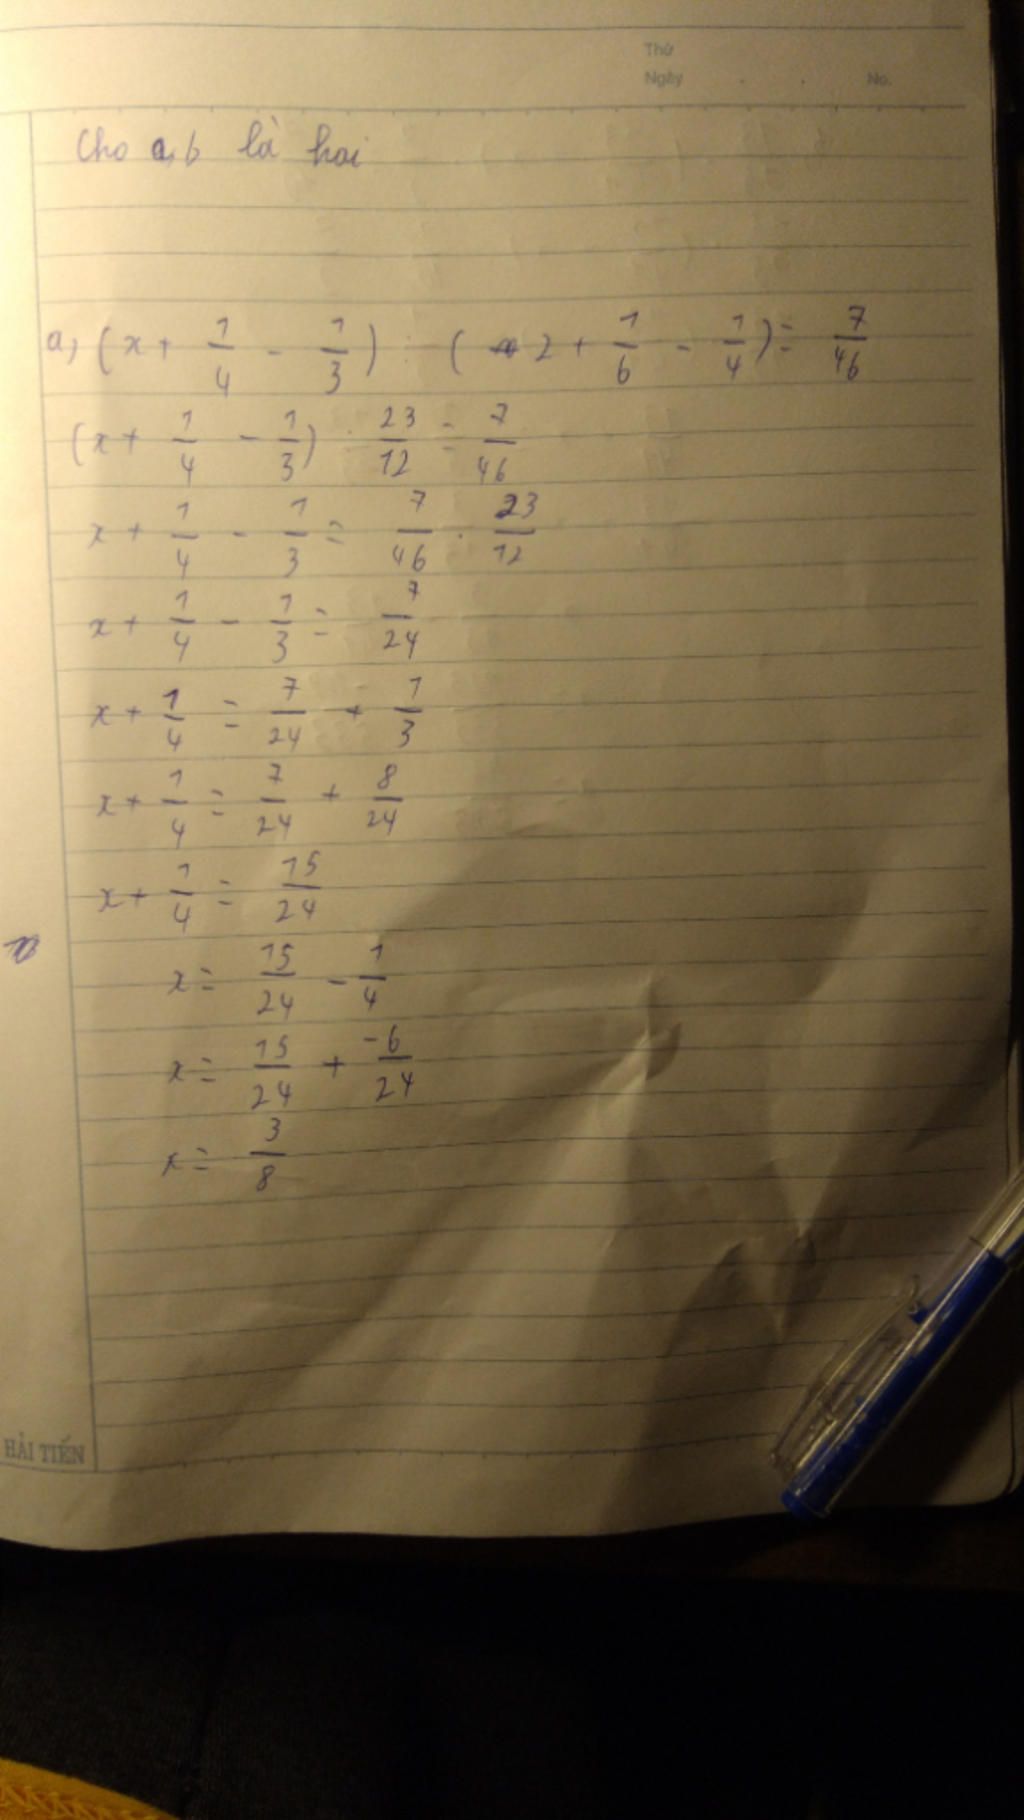 Thứ
Ngày . . No.
Cho a,b là hai
a, (x + 1/4 - 1/3) : (2 + 1/6 - 1/4) = 7/46
(x + 1/4 - 1/3) : 23/12 = 7/46
x + 1/4 - 1/3 = 7/46 . 23/12
x + 1/4 - 1/3 = 7/24
x + 1/4 = 7/24 + 1/3
x + 1/4 = 7/24 + 8/24
x + 1/4 = 15/24
x = 15/24 - 1/4
x = 15/24 + -6/24
x = 3/8
HẢI TIẾN